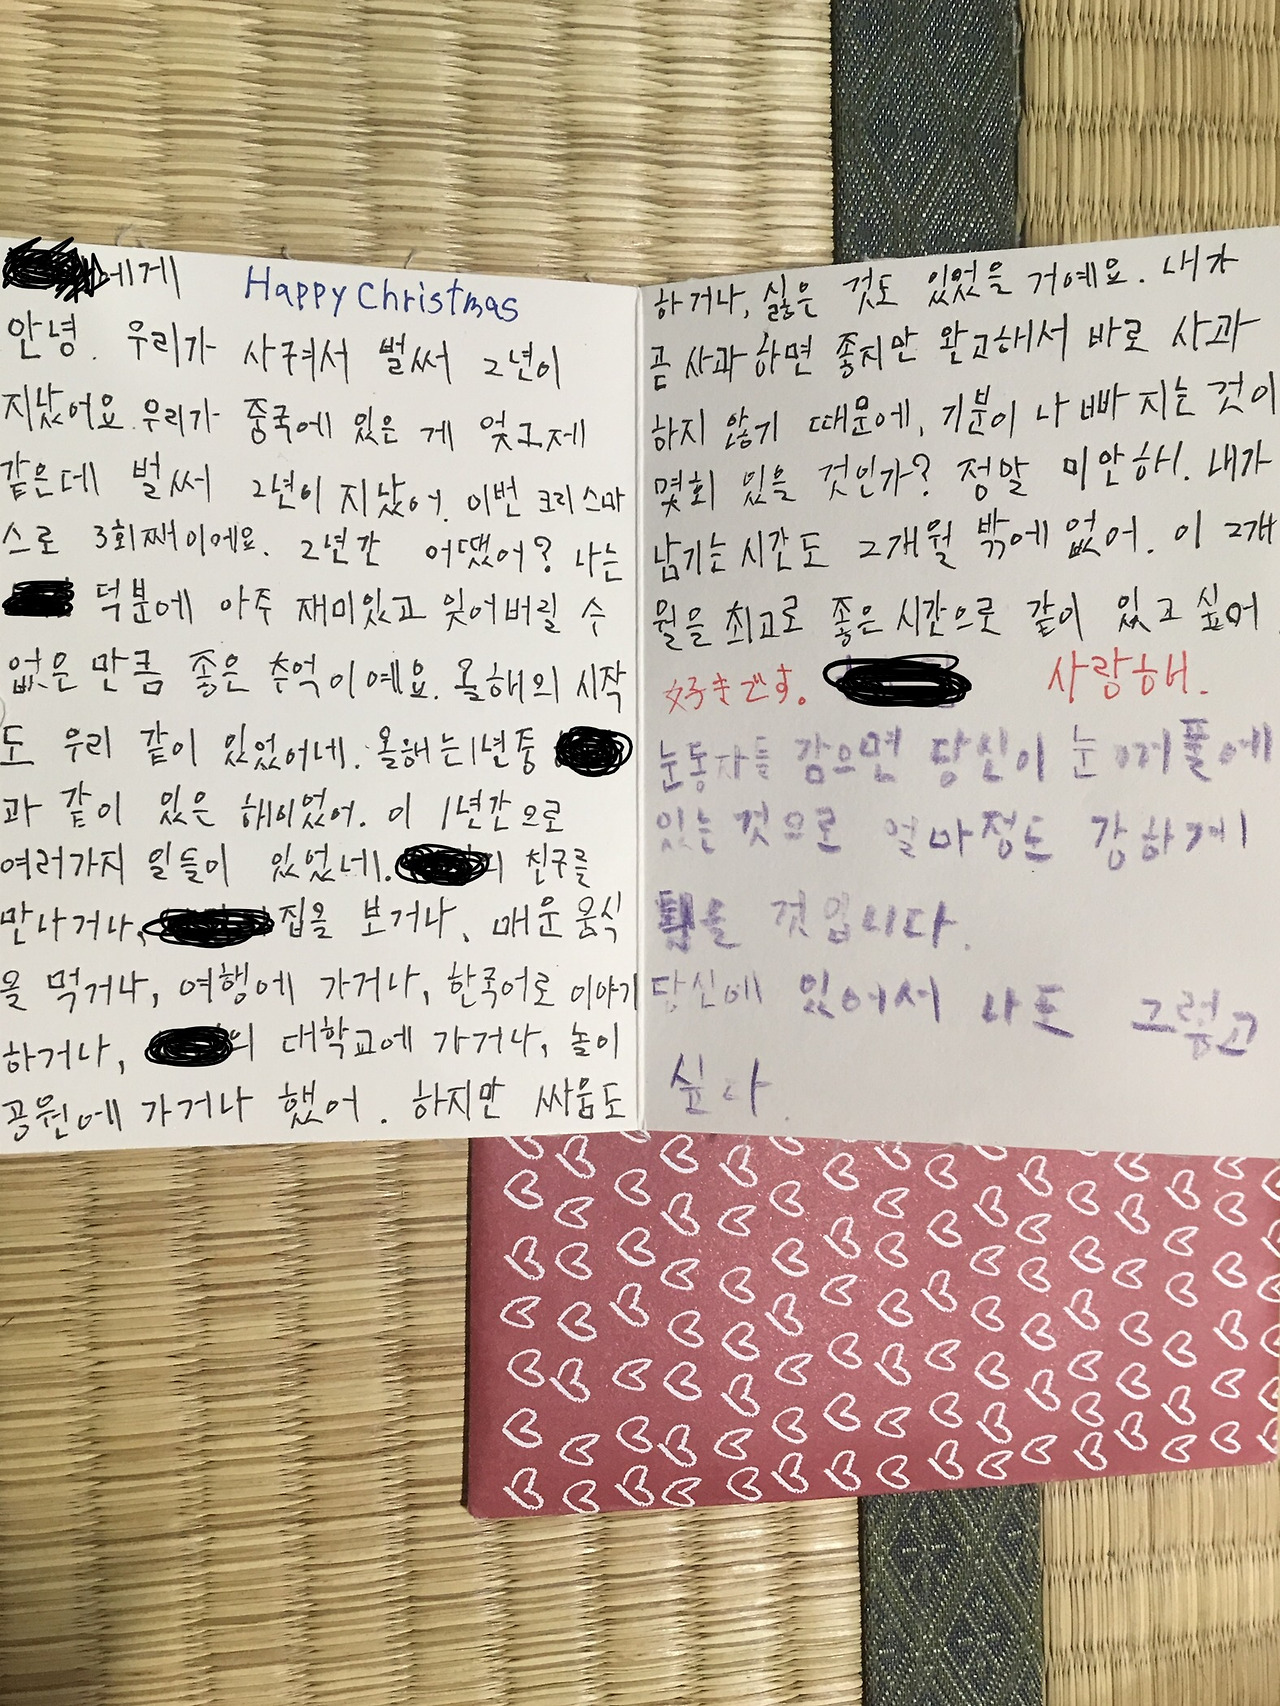 에게 Happy Christmas
안녕. 우리가 사귀서 벌써 2년이
지났어요. 우리가 중국에 있은 게 엊그제
같은데 벌써 2년이 지났어. 이번 크리스마
스로 3회째이에요. 2년간 어땠어? 나는
덕분에 아주 재미있고 잊어버릴 수
없은 만큼 좋은 추억이예요. 올해의 시작
도 우리 같이 있었어네. 올해는 1년중
과 같이 있은 해이었어. 이 1년간으로
여러가지 일들이 있었네. 의 친구를
만나거나, 집을 보거나, 매운 음식
을 먹거나, 여행에 가거나, 한국어로 이야기
하거나, 의 대학교에 가거나, 놀이
공원에 가거나 했어. 하지만 싸움도
하거나, 싫은 것도 있었을 거예요. 내가
곧 사과하면 좋지만 완고해서 바로 사과
하지 않기 때문에, 기분이 나빠지는 것이
몇회 있을 것인가? 정말 미안해. 내가
남기는 시간도 2개월 밖에 없어. 이 2개
월을 최고로 좋은 시간으로 같이 있고 싶어.
好きです。 사랑해.
눈동자를 감으면 당신이 눈꺼풀에
있는 것으로 얼마정도 강하게
을 것입니다.
당신에 있어서 나도 그렇고
싶다.